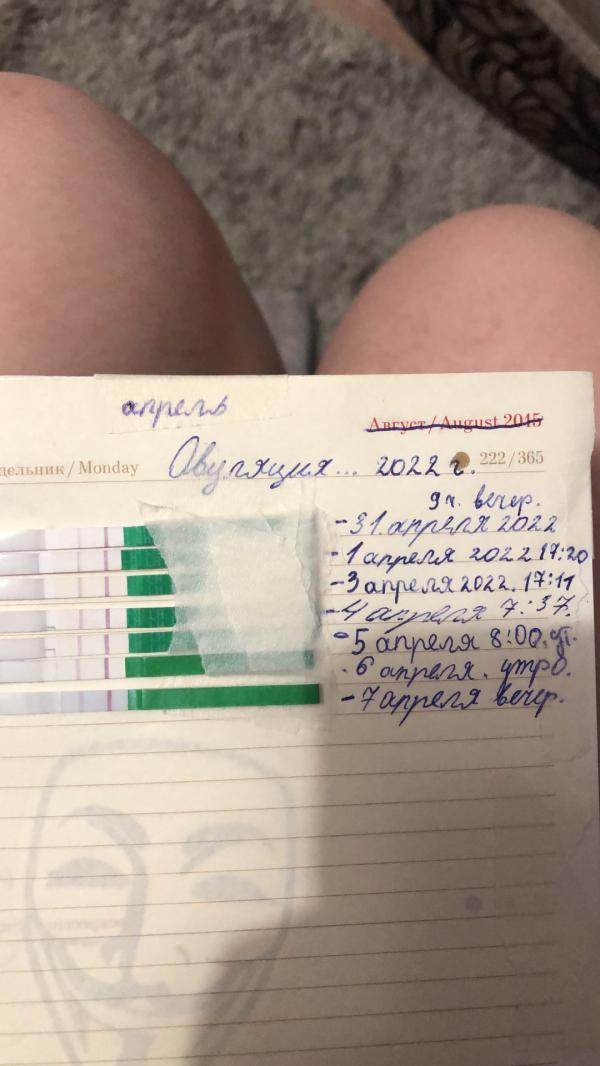 апрель
Август/August 2015
дельник/Monday
Овуляция... 2022 г.
222/365
9ч. вечер.
-31 апреля 2022
-1 апреля 2022 17:20
-3 апреля 2022. 17:11
-4 апреля 7:37.
-5 апреля 8:00. ут.
. 6 апреля. утро.
-7 апреля вечер.